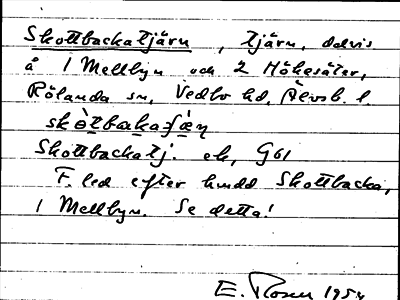 Skottbackatjärn, tjärn, delvis
å 1 Mellbyn och 2 Hökesäter,
Rölanda sn, Vedbo hd, Älvsb. l.
skòtbakaʃæ̀ṇ
Skottbackatj. ek, G61
F. led efter hmdd Skottbacka,
1 Mellbyn. Se detta!
E. Rosen 195